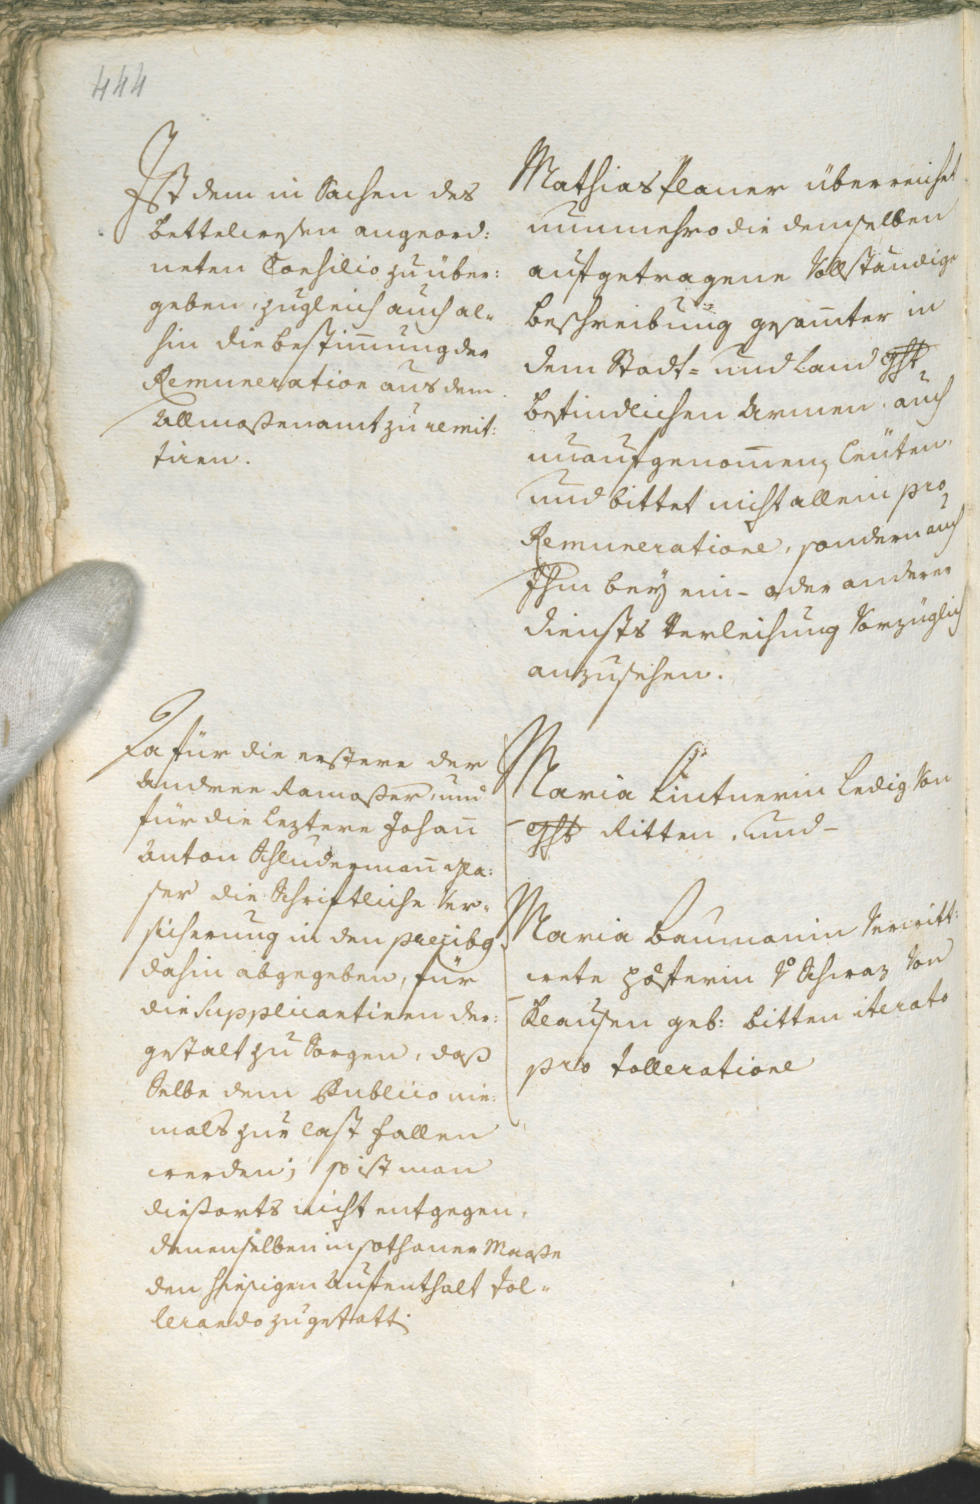 444
Ist dem in Sachen des
Bettelwesen angeord:
neten Consilio zu über:
geben, zugleich auch al-
hin die Bestim̅ung der
Remuneration aus dem
Allmoßenamt zu remit:
tiren.
Mathias Planer überreichet
nunmehro die demselben
aufgetragene Vollständige
Beschreibung gesam̅ter in
dem Stadt- und Land ght
befindlichen Armen, auch
aufgenom̅en Leüten,
und bittet nicht allein pro
Remuneratione, sondern auch
Ihm bey ein- oder anderer
diensts Verleihung Vorzüglich
anzusehen.
Da für die erstere der
Andree Ramoßer, und
für die leztere Johan̅
Anton Schludermann
die Schriftliche Ver-
sicherung in den precibg
dahin abgegeben, für
die Supplicantinen der:
gestalt zu Sorgen, daß
Selbe dem Publico nie:
mals zur last fallen
werden; so ist man
dießorts nicht entgegen,
denenselben in sothaner Maaße
den hiesigen Aufenthalt tol-
lerando zu gstatt:
Maria Lintnerin Ledig Von
ghts Ritten, und-
Maria Baumanin Verwitt:
wete Von
Klausen geb: bitten iterato
pro tolleratione